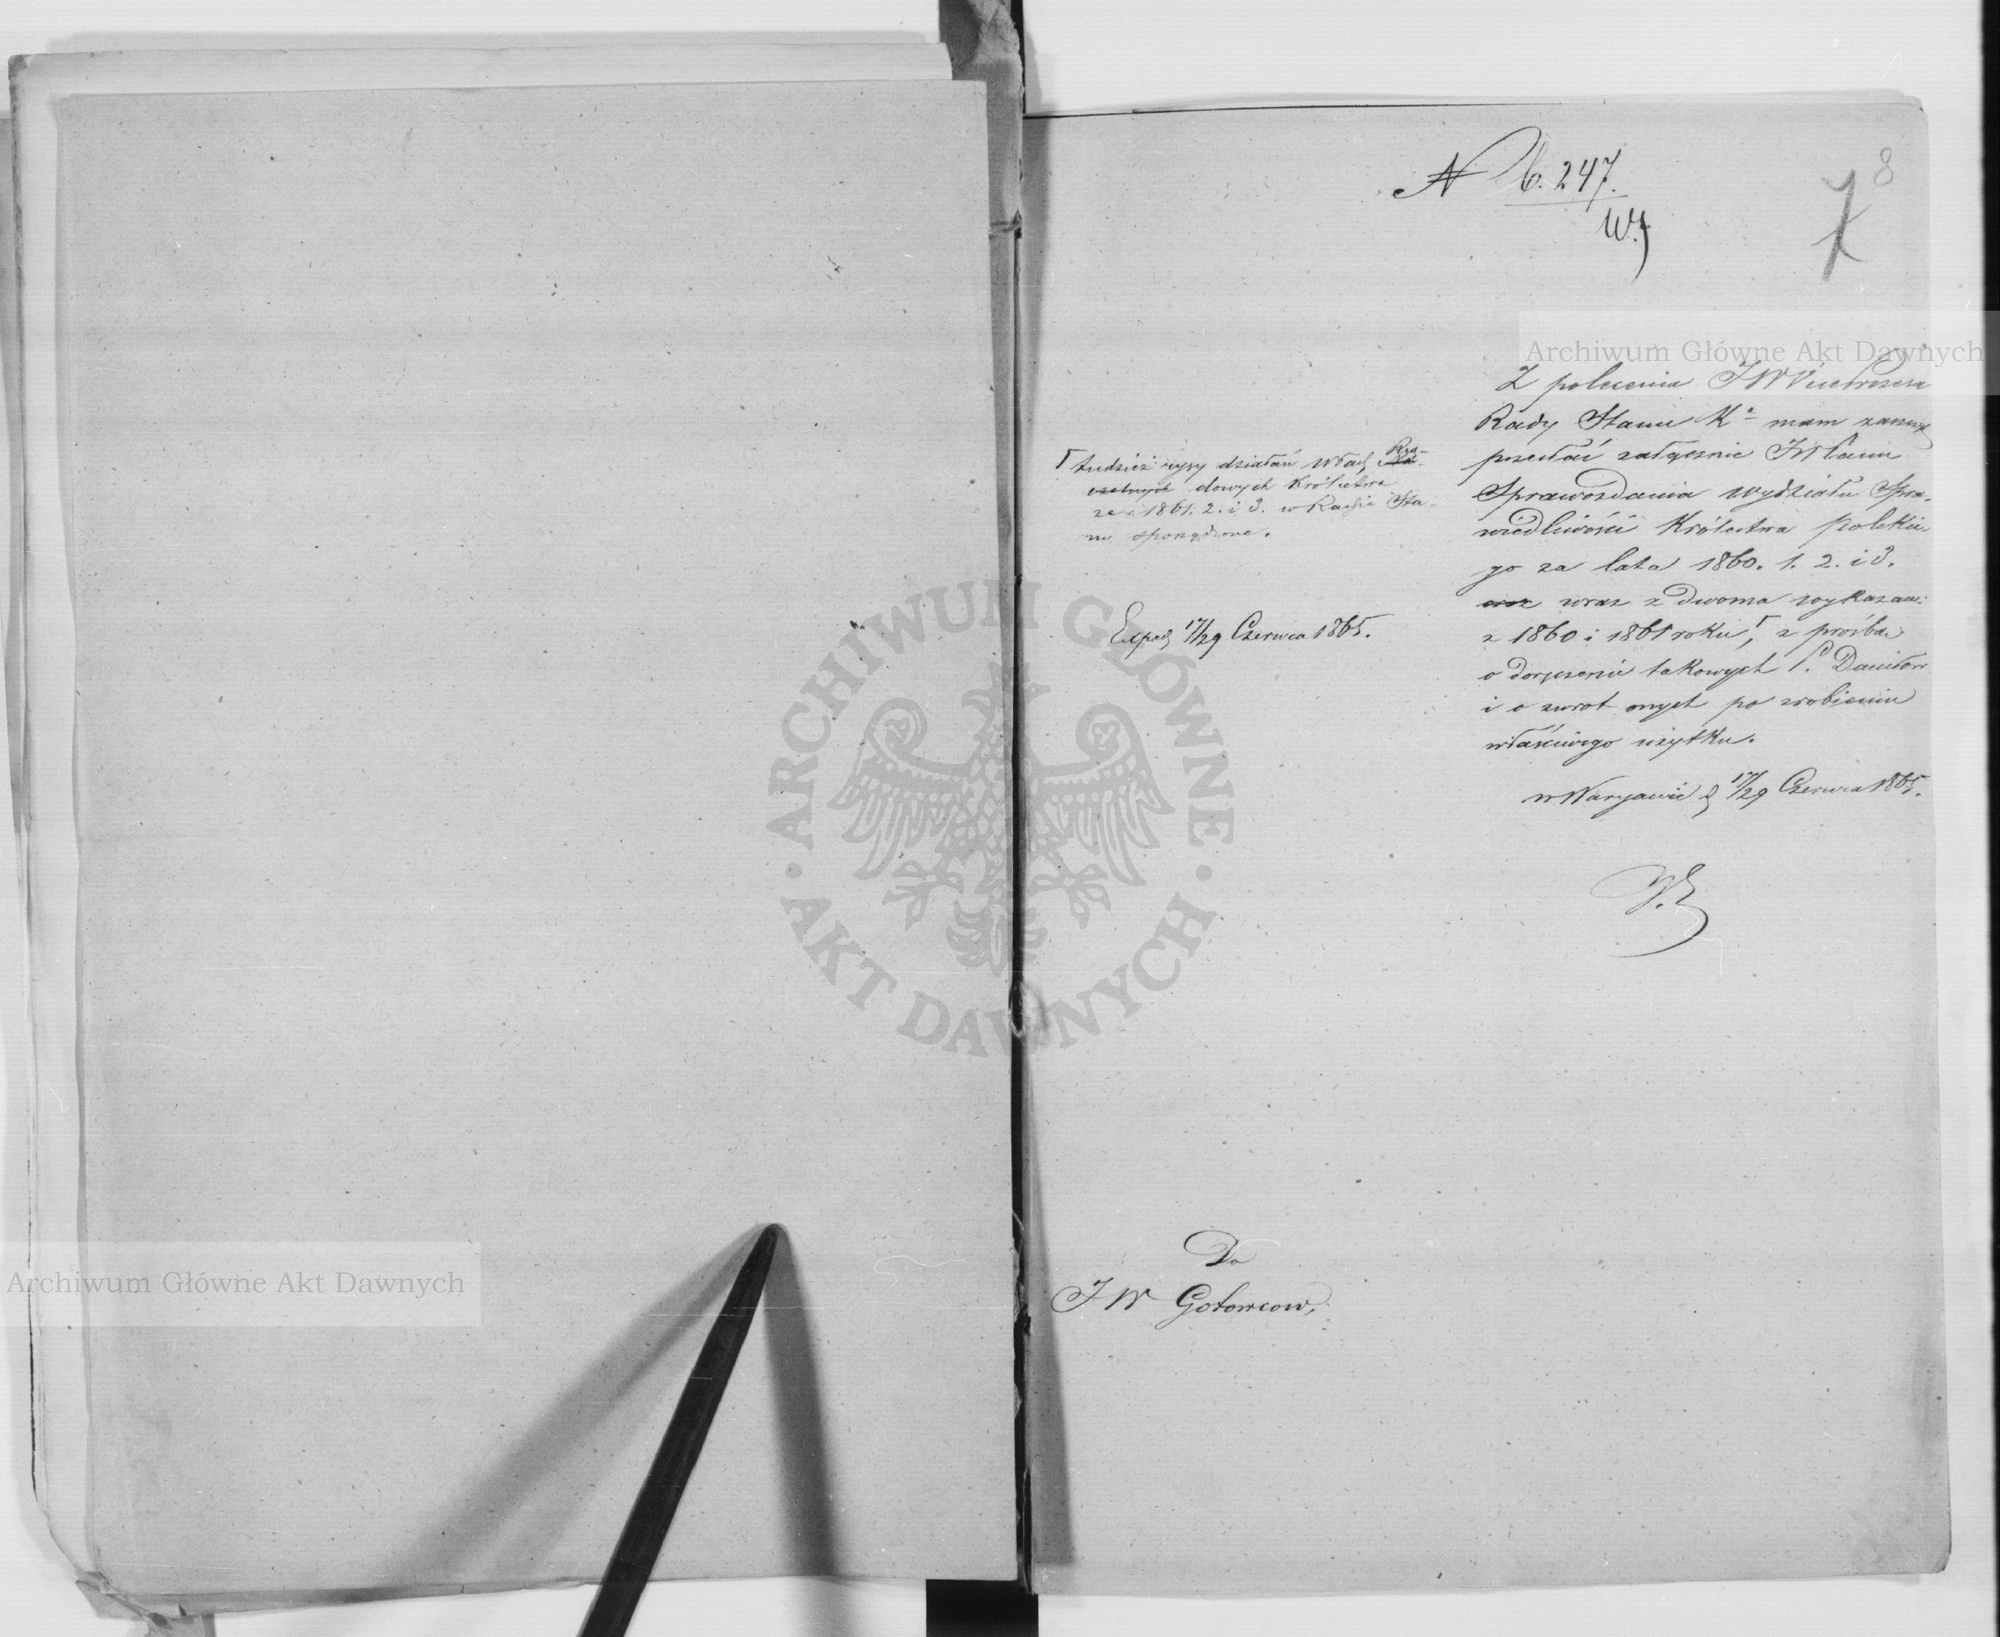 N b. 247.
W.
8
7
Archiwum Główne Akt Dawnych
Z polecenia JW Viceprezesa
Rady Stanu Kr mam zaszczyt
przesłać załącznie JW Panu
Sprawozdania wydziału Spra-
wiedliwości Królestwa Polskie-
go za lata 1860. 1. 2. i 3.
oraz wraz z dwoma wykazami
z 1860 i 1861 roku, z prośbą
o doręczenie takowych P. Daniłow
i o zwrot onych po zrobieniu
właściwego użytku.
w Warszawie d 17/29 Czerwca 1865.
tudzież rysy działań Władz Rzą-
dowych Królestwa
za r. 1861. 2. i 3. w Radzie Sta-
nu sporządzone.
Exped 17/29 Czerwca 1865.
ARCHIWUM GŁÓWNE
AKT DAWNYCH
Do
JW Gołowcow,
Archiwum Główne Akt Dawnych